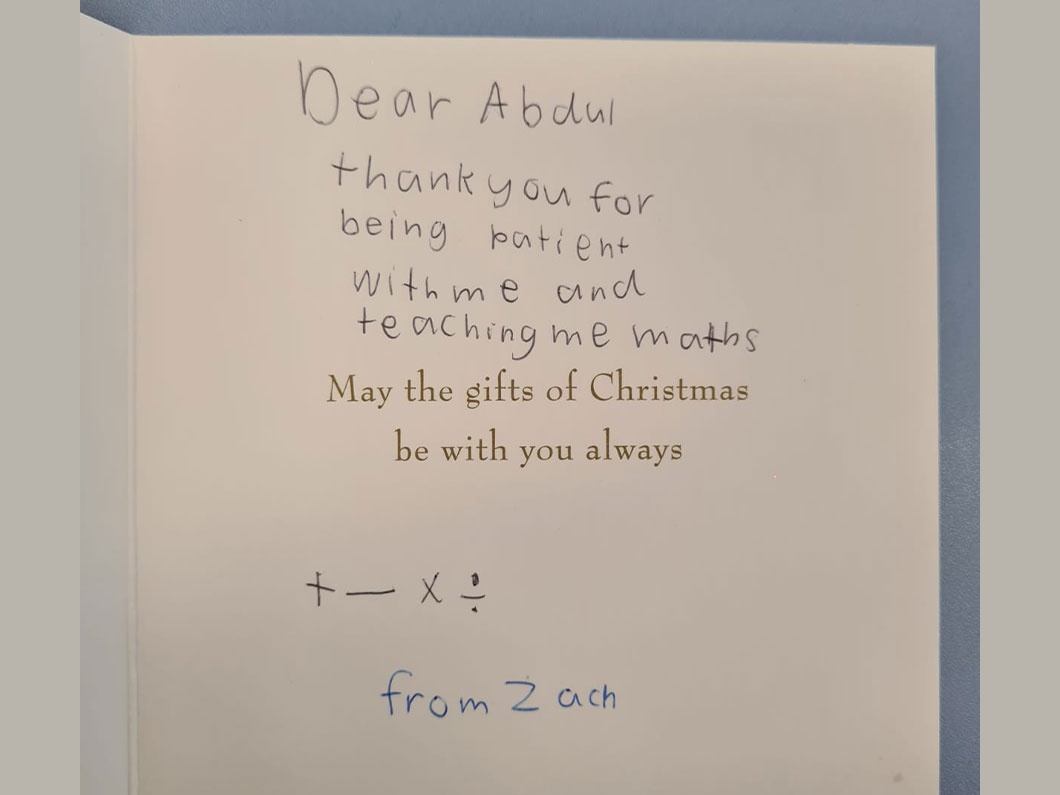 Dear Abdul
thank you for
being patient
with me and
teaching me maths
May the gifts of Christmas
be with you always
+ — x ÷
from Zach